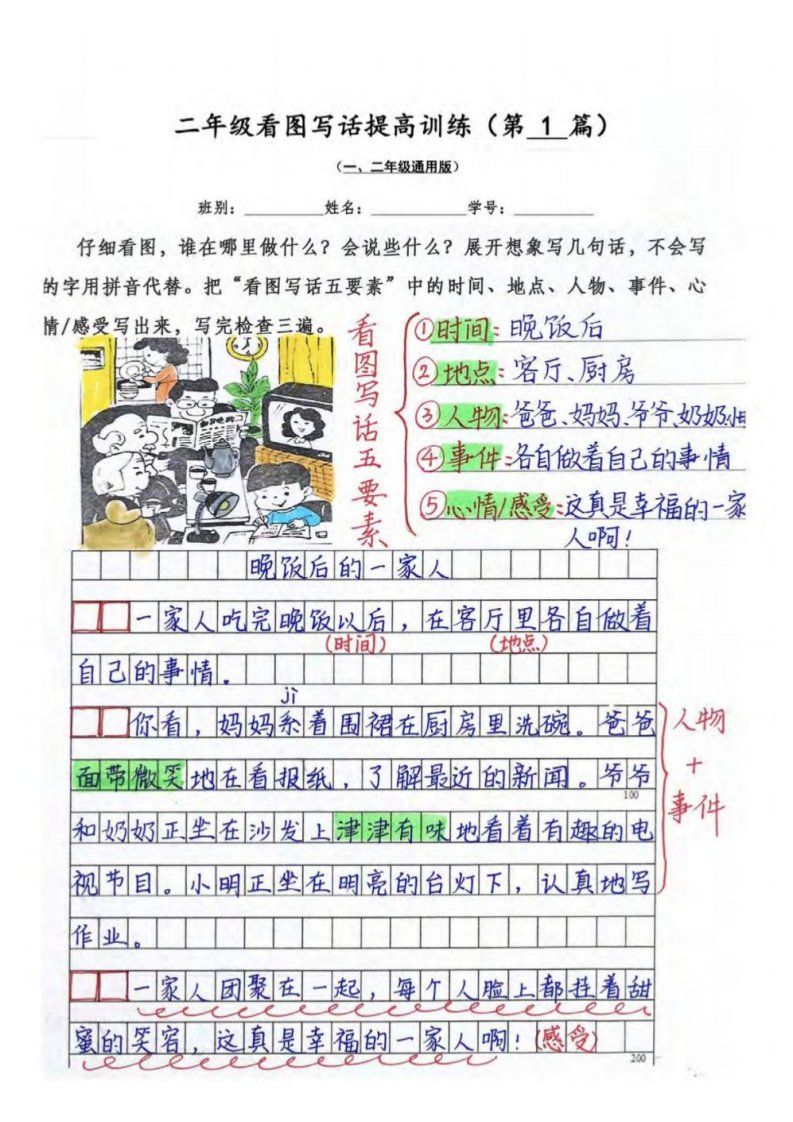 二年级看图写话提高训练（第 1 篇）
（一、二年级通用版）
班别：________姓名：________学号：________
仔细看图，谁在哪里做什么？会说些什么？展开想象写几句话，不会写
的字用拼音代替。把“看图写话五要素”中的时间、地点、人物、事件、心
情/感受写出来，写完检查三遍。
看图写话五要素
①时间：晚饭后
②地点：客厅、厨房
③人物：爸爸、妈妈、爷爷、奶奶、
④事件：各自做着自己的事情
⑤心情/感受：这真是幸福的一家
人啊！
晚饭后的一家人
一家人吃完晚饭以后，在客厅里各自做着
（时间）（地点）
自己的事情。
jì
你看，妈妈系着围裙在厨房里洗碗。爸爸
面带微笑地在看报纸，了解最近的新闻。爷爷
100
和奶奶正坐在沙发上津津有味地看着有趣的电
视节目。小明正坐在明亮的台灯下，认真地写
作业。
人物
+
事件
一家人团聚在一起，每个人脸上都挂着甜
蜜的笑容，这真是幸福的一家人啊！（感受）
200